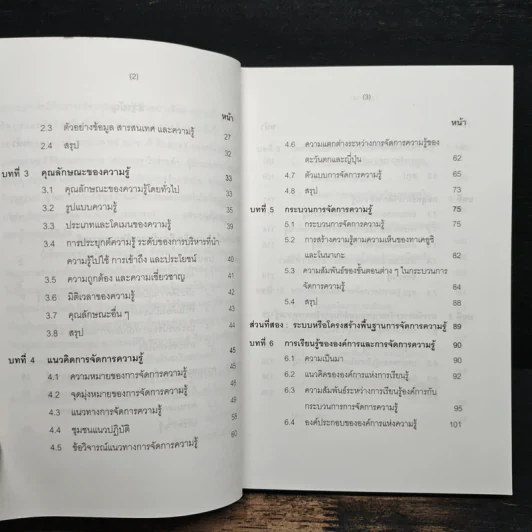 (2)
หน้า
2.3 ตัวอย่างข้อมูล สารสนเทศ และความรู้ 27
2.4 สรุป 32
บทที่ 3 คุณลักษณะของความรู้ 33
3.1 คุณลักษณะของความรู้โดยทั่วไป 33
3.2 รูปแบบความรู้ 35
3.3 ประเภทและโดเมนของความรู้ 39
3.4 การประยุกต์ความรู้ ระดับของการบริหารที่นำ
ความรู้ไปใช้ การเข้าถึง และประโยชน์ 40
3.5 ความถูกต้อง และความเชี่ยวชาญ 41
3.6 มิติเวลาของความรู้ 42
3.7 คุณลักษณะอื่น ๆ 43
3.8 สรุป 44
บทที่ 4 แนวคิดการจัดการความรู้ 45
4.1 ความหมายของการจัดการความรู้ 45
4.2 จุดมุ่งหมายของการจัดการความรู้ 49
4.3 แนวทางการจัดการความรู้
4.4 ชุมชนแนวปฏิบัติ 58
4.5 ข้อวิจารณ์แนวทางการจัดการความรู้ 60
(3)
หน้า
4.6 ความแตกต่างระหว่างการจัดการความรู้ของ
ตะวันตกและญี่ปุ่น 62
4.7 ตัวแบบการจัดการความรู้ 65
4.8 สรุป 73
บทที่ 5 กระบวนการจัดการความรู้ 75
5.1 กระบวนการจัดการความรู้ 75
5.2 การสร้างความรู้ตามความเห็นของทาเคอูชิ
และโนนากะ 82
5.3 ความสัมพันธ์ของขั้นตอนต่าง ๆ ในกระบวนการ
จัดการความรู้ 84
5.4 สรุป 88
ส่วนที่สอง : ระบบหรือโครงสร้างพื้นฐานการจัดการความรู้ 89
บทที่ 6 การเรียนรู้ขององค์การและการจัดการความรู้ 90
6.1 ความเป็นมา 90
6.2 แนวคิดขององค์การแห่งการเรียนรู้ 92
6.3 ความสัมพันธ์ระหว่างการเรียนรู้องค์การกับ
กระบวนการการจัดการความรู้ 95
6.4 องค์ประกอบขององค์การแห่งความรู้ 101